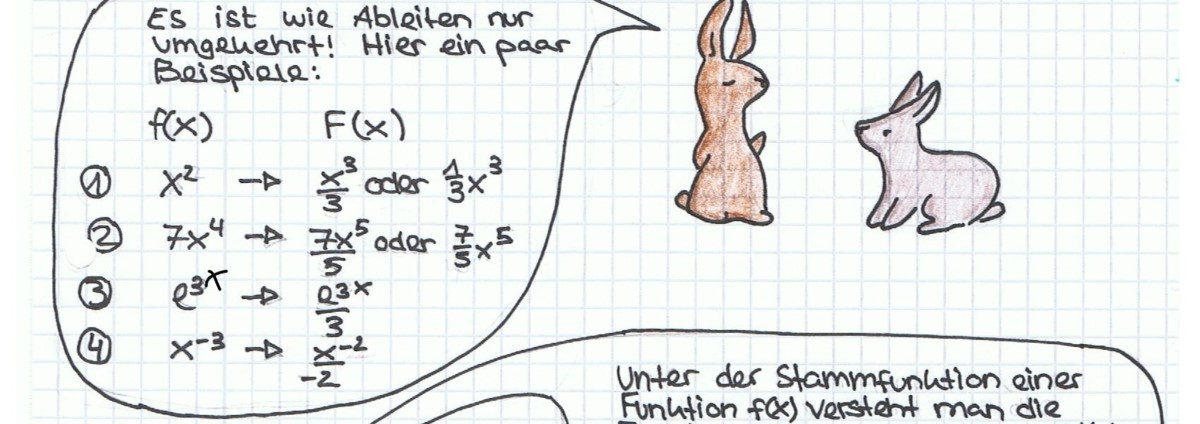 Es ist wie Ableiten nur
umgekehrt! Hier ein paar
Beispiele:
f(x) F(x)
① x² → x³/3 oder 1/3 x³
② 7x⁴ → 7x⁵/5 oder 7/5 x⁵
③ e³ˣ → e³ˣ/3
④ x⁻³ → x⁻²/-2
Unter der Stammfunktion einer
Funktion f(x) versteht man die